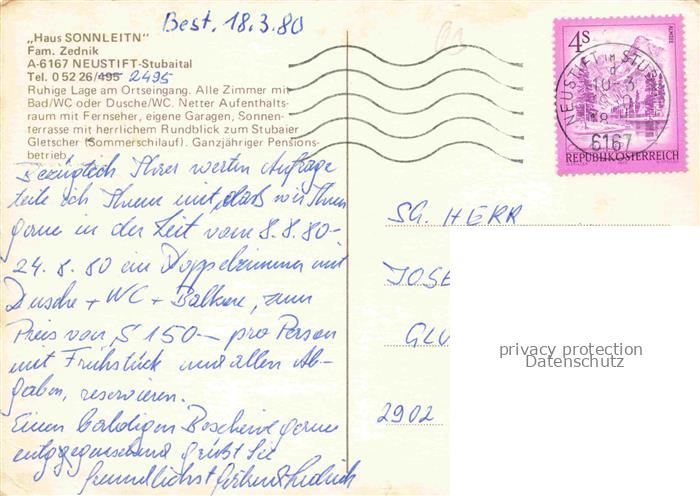 Best. 18.3.80
„Haus SONNLEITN"
Fam. Zednik
A-6167 NEUSTIFT-Stubaital
Tel. 0 52 26/495 2495
Ruhige Lage am Ortseingang. Alle Zimmer mit
Bad/WC oder Dusche/WC. Netter Aufenthalts-
raum mit Fernseher, eigene Garagen, Sonnen-
terrasse mit herrlichem Rundblick zum Stubaier
Gletscher (Sommerschilauf). Ganzjähriger Pensions-
betrieb
Bezüglich Ihrer werten Anfrage
teile ich Ihnen mit, daß wir Ihnen
gerne in der Zeit vom 8.8.80-
24.8.80 ein Doppelzimmer mit
Dusche + WC + Balkon, zum
Preis von S 150- pro Person
mit Frühstück und allen Ab-
gaben, reservieren.
Einen baldigen Bescheid gerne
entgegensehend grüßt Sie
freundlichst
4s
REPUBLIK ÖSTERREICH
NEUSTIFT IM STUB
6167
SG. HERR
JOSE
GLU
2902
privacy protection
Datenschutz